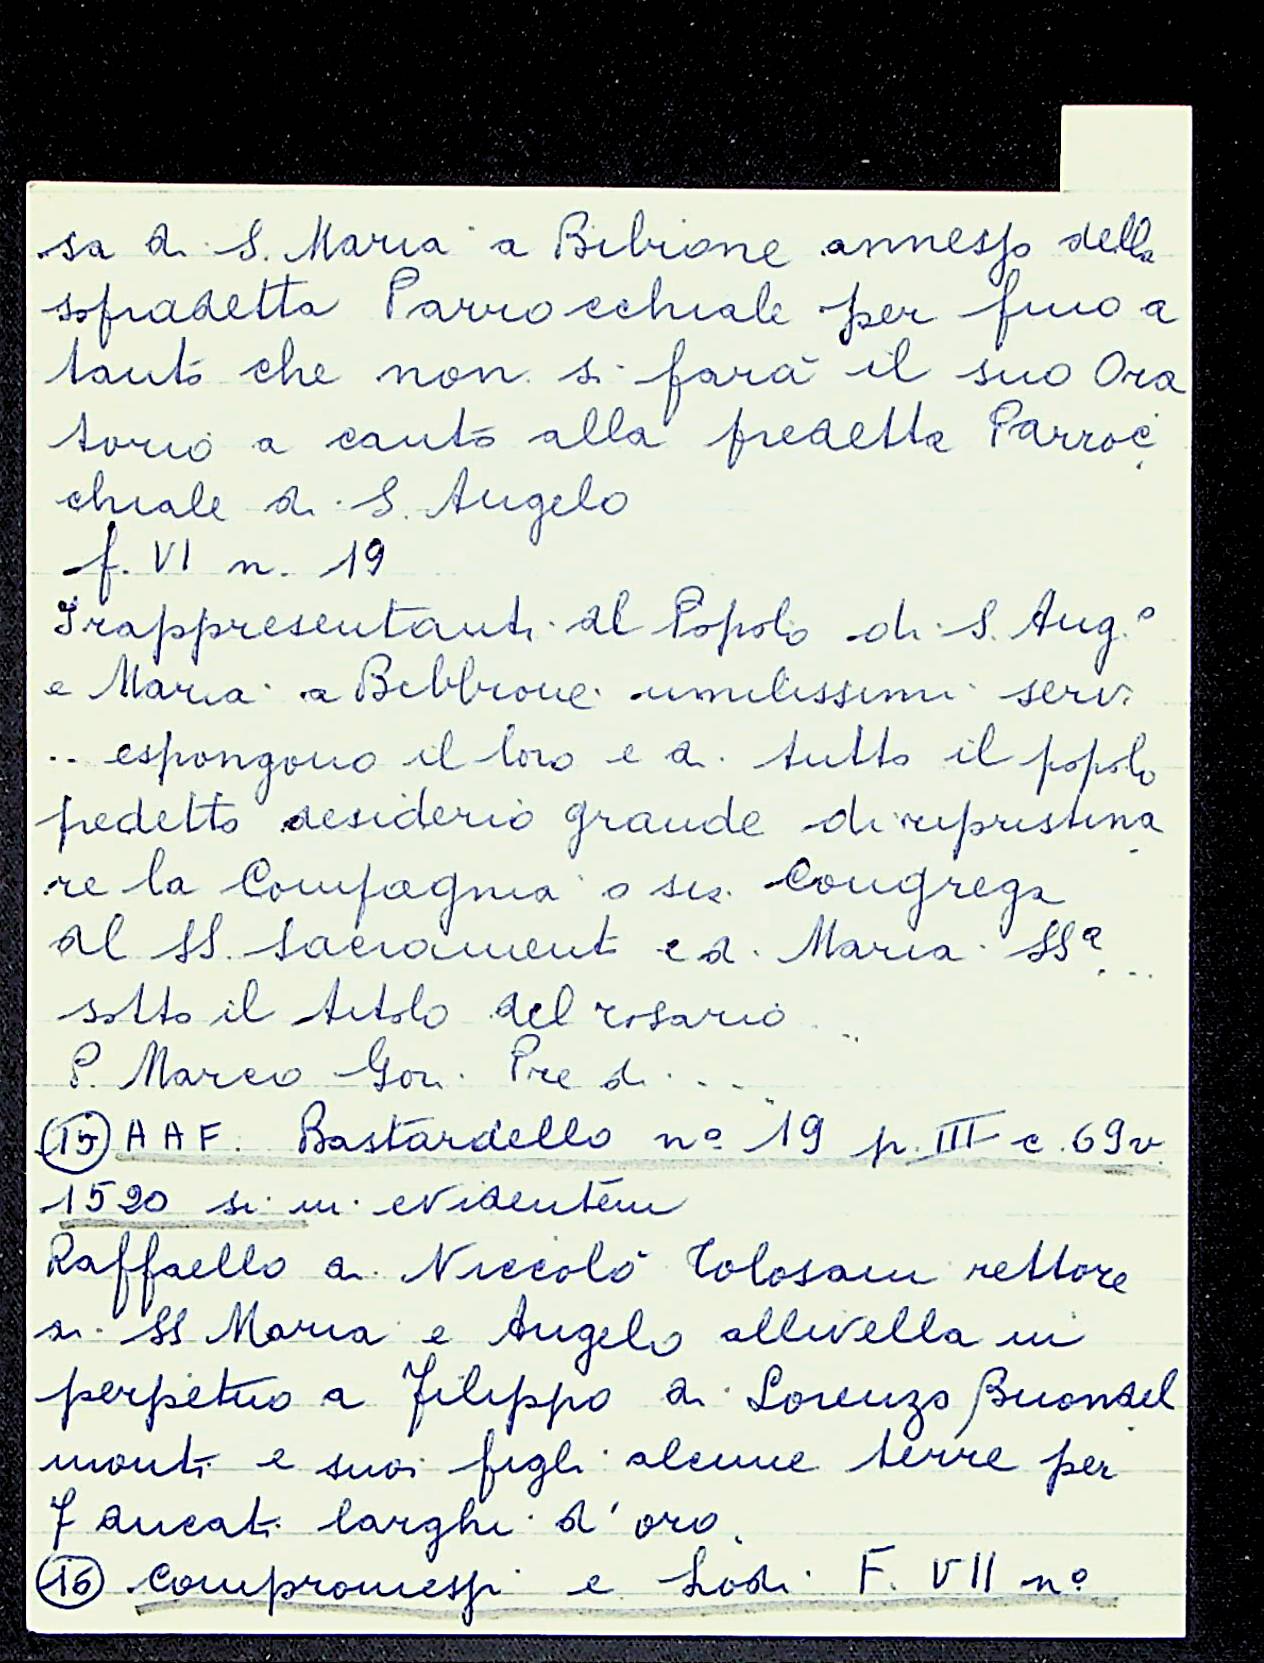 sa di S. Maria a Bibione annesso della
sopradetta Parrocchiale per fino a
tanto che non si farà il suo Ora
torio a canto alla predetta Parroc
chiale di S. Angelo
f. VI n. 19
I rappresentanti al Popolo di S. Ang.º
e Maria a Bibbione umilissimi servi
.. espongono il loro e di tutto il popolo
predetto desiderio grande di ripristina
re la Compagnia o sia Congrega
al SS. Sacramento e di Maria SSª ...
sotto il titolo del rosario ..
P. Marco Gori Pre di ...
(15) AAF. Bastardello nº 19 p. III c. 69v.
1520 si in evidentem
Raffaello di Niccolò Tolosani rettore
di SS Maria e Angelo allivella in
perpetuo a Filippo di Lorenzo Buondel
monti e suoi figli alcune terre per
7 ducati larghi d'oro.
(16) Compromessi e Lodi F. VII nº